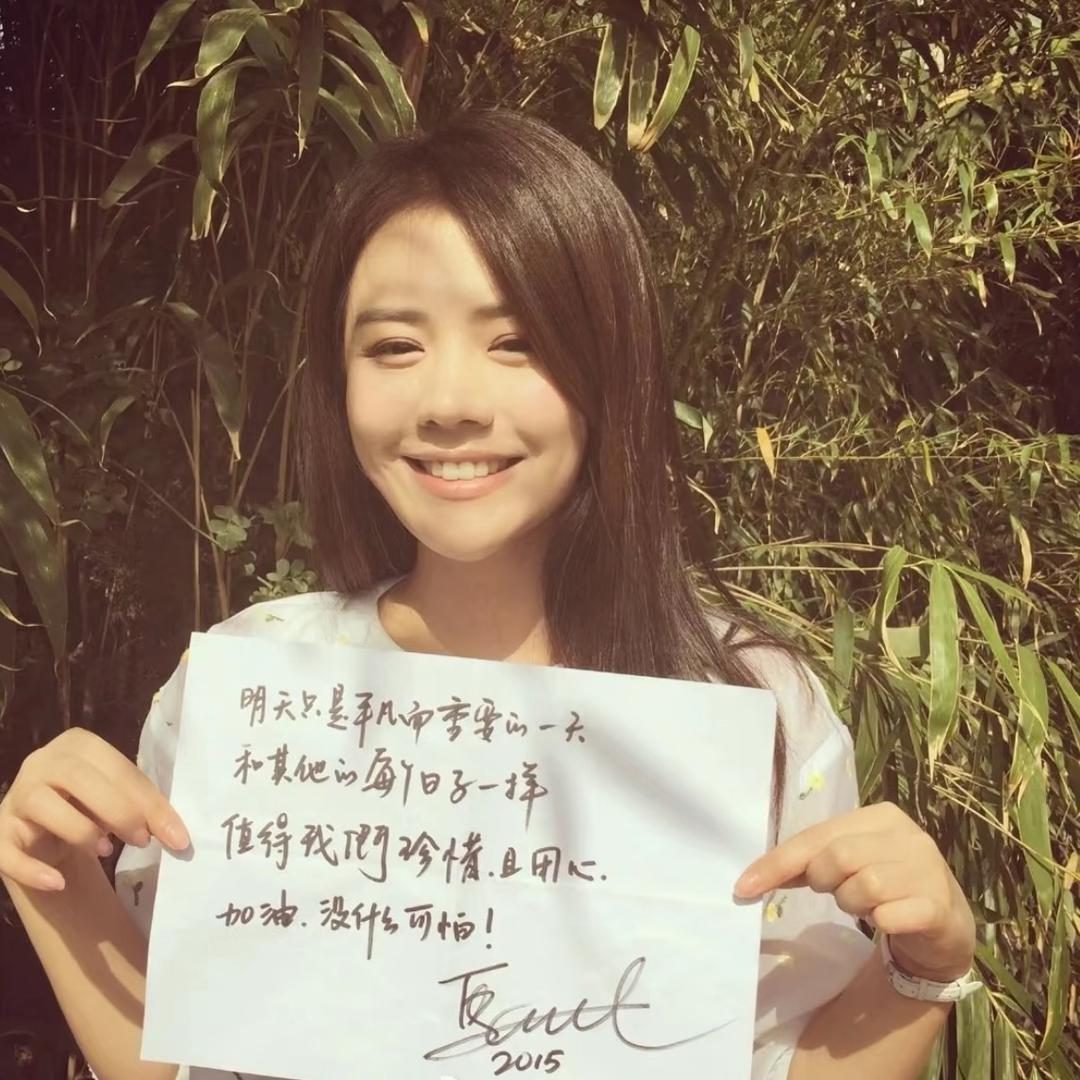 明天只是平凡而重要的一天
和其他的每个日子一样
值得我們珍惜.且用心.
加油.没什么可怕!
2015